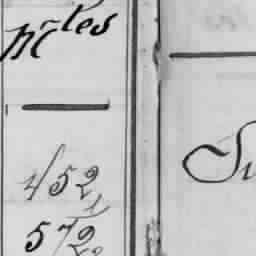 Nᵒ̃les
452,
572.
Su